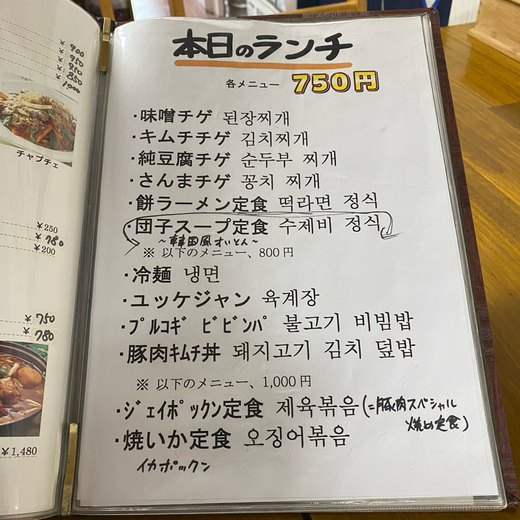 本日のランチ
各メニュー 750円
・味噌チゲ 된장찌개
・キムチチゲ 김치찌개
・純豆腐チゲ 순두부 찌개
・さんまチゲ 꽁치 찌개
・餅ラーメン定食 떡라면 정식
・団子スープ定食 수제비 정식
～韓国風すいとん～
※ 以下のメニュー、800円
・冷麺 냉면
・ユッケジャン 육계장
・プルコギ ビビンパ 불고기 비빔밥
・豚肉キムチ丼 돼지고기 김치 덮밥
※ 以下のメニュー、1,000円
・ジェイポックン定食 제육볶음(=豚肉スペシャル
焼き定食)
・焼いか定食 오징어볶음
イカポックン
¥ 900
¥ 950
¥ 950
¥ 850
¥ 1000
チャプチェ
¥250
¥ 780
¥200
¥ 750
¥ 780
¥1,480